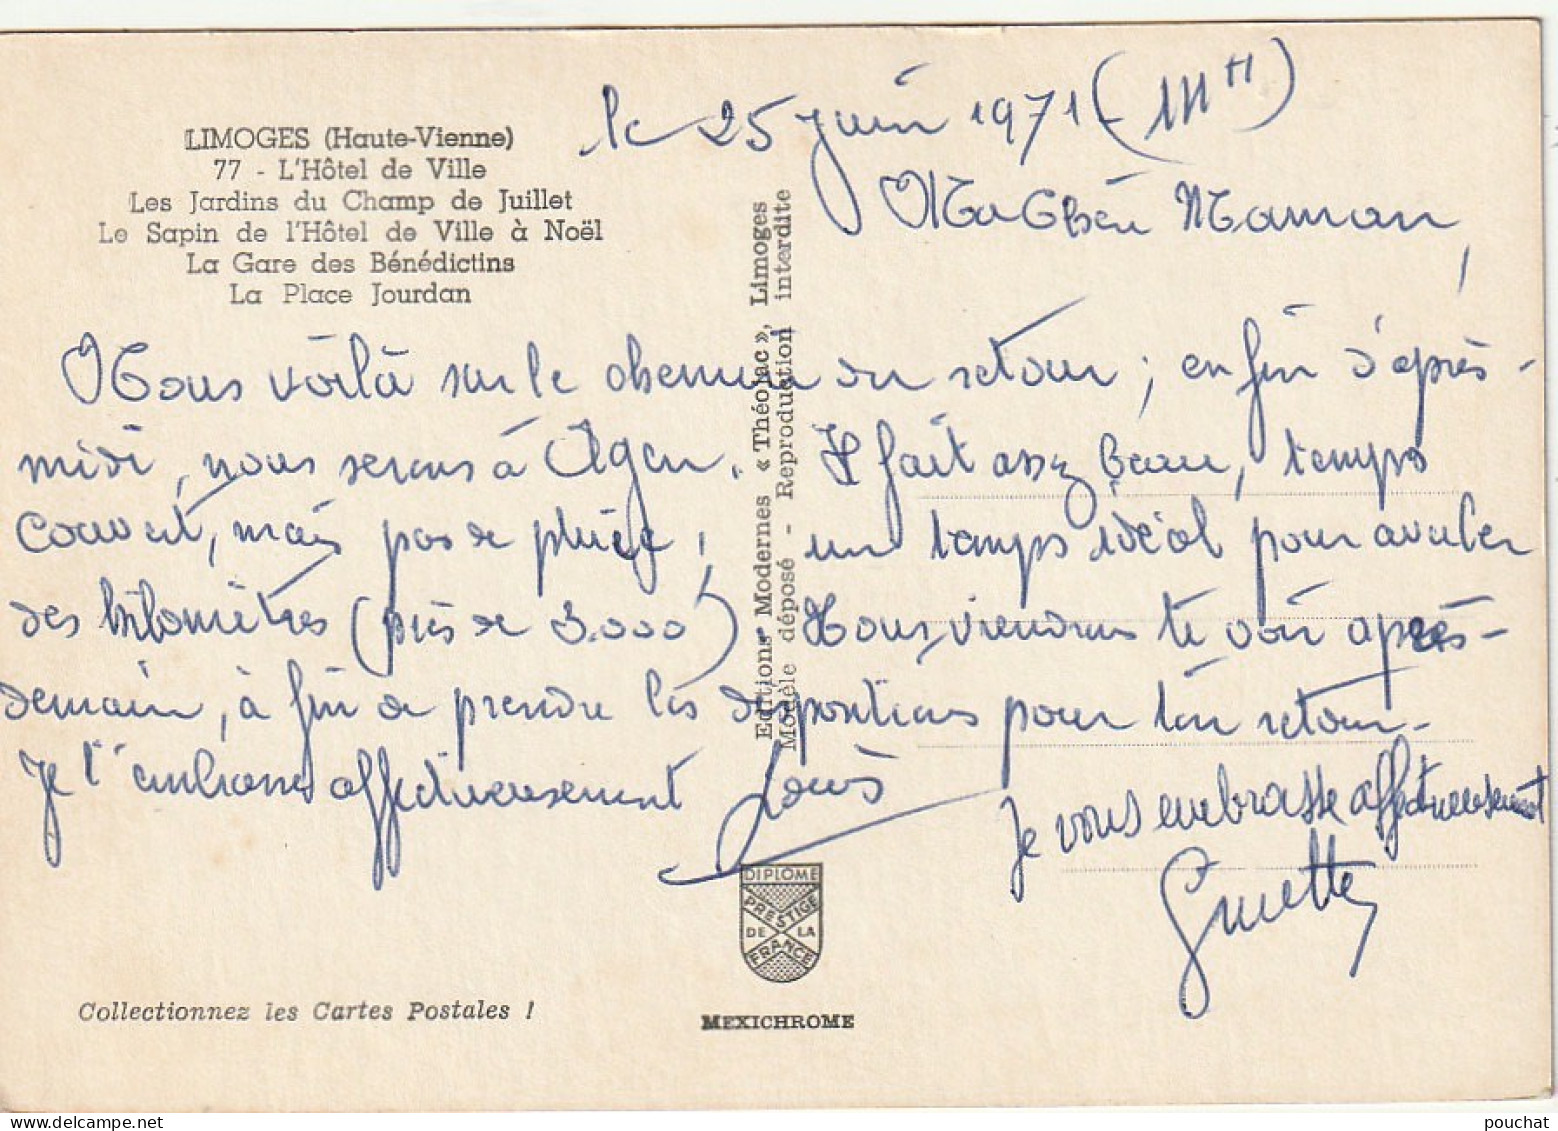 LIMOGES (Haute-Vienne)
77 - L'Hôtel de Ville
Les Jardins du Champ de Juillet
Le Sapin de l'Hôtel de Ville à Noël
La Gare des Bénédictins
La Place Jourdan
le 25 juin 1971 (11H)
Ma Chère Maman,
Nous voilà sur le chemin du retour ; en fin d'après-
midi, nous serons à Agen. Il fait assez beau, temps
couvert, mais pas de pluie ; un temps idéal pour avaler
des kilomètres (près de 3.000). Nous viendrons te voir après-
demain, à fin de prendre les dispositions pour ton retour.
Je t'embrasse affectueusement Louis
Je vous embrasse affectueusement
Ginette
Editions Modernes « Théojac », Limoges
Modèle déposé - Reproduction interdite
DIPLOME
PRESTIGE
DE LA
FRANCE
Collectionnez les Cartes Postales !
MEXICHROME
pouchat